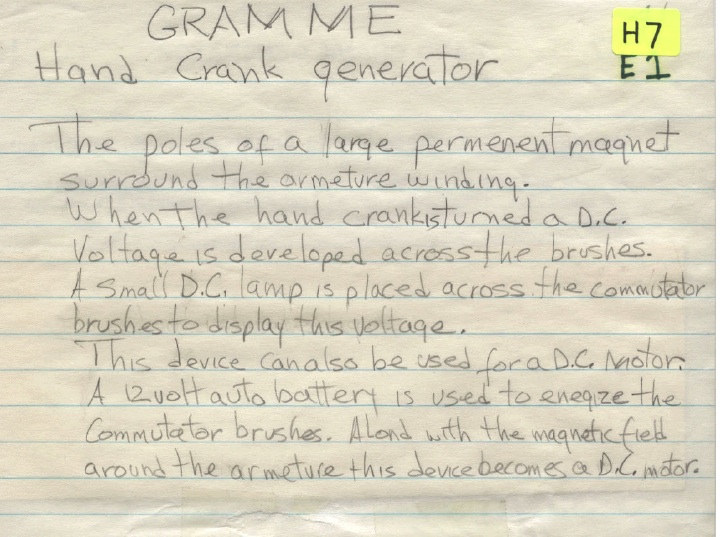 GRAMME
H7
Hand Crank generator
E1
The poles of a large permenent magnet
surround the armeture winding.
When the hand crank is turned a D.C.
Voltage is developed across the brushes.
A Small D.C. lamp is placed across the commutator
brushes to display this voltage.
This device can also be used for a D.C. Motor.
A 12 volt auto battery is used to eneqize the
Commutator brushes. Alond with the magnetic field
around the armeture this device becomes a D.C. motor.